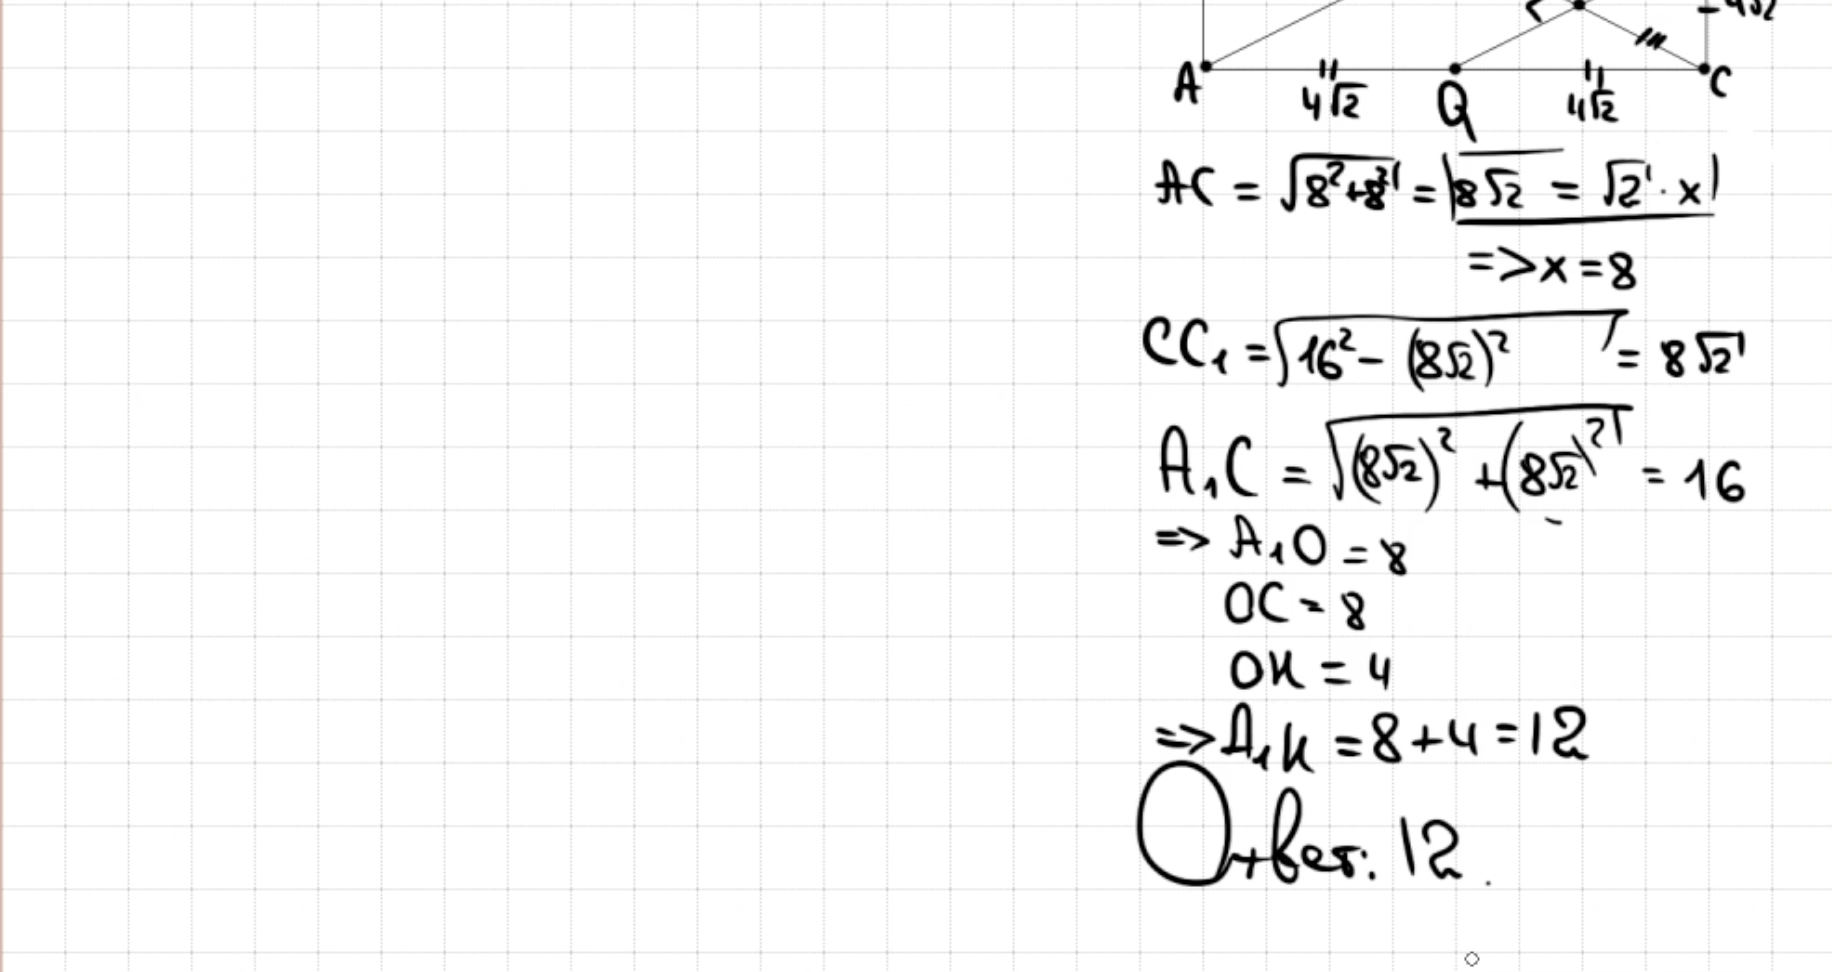 - 4√2
A 4√2 Q 4√2 C
AC = √8²+8² = |8√2 = √2 · x|
=> x = 8
CC₁ = √16² - (8√2)² = 8√2
A₁C = √(8√2)² + (8√2)² = 16
=> A₁O = 8
OC = 8
OK = 4
=> A₁K = 8+4 = 12
Ответ: 12.